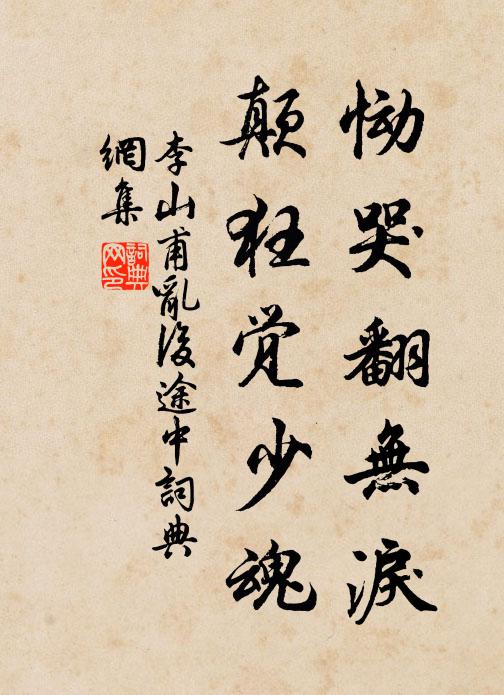 恸哭翻無淚
颠狂觉少魂
李山甫亂後途中詞典
網集
詞典
网印